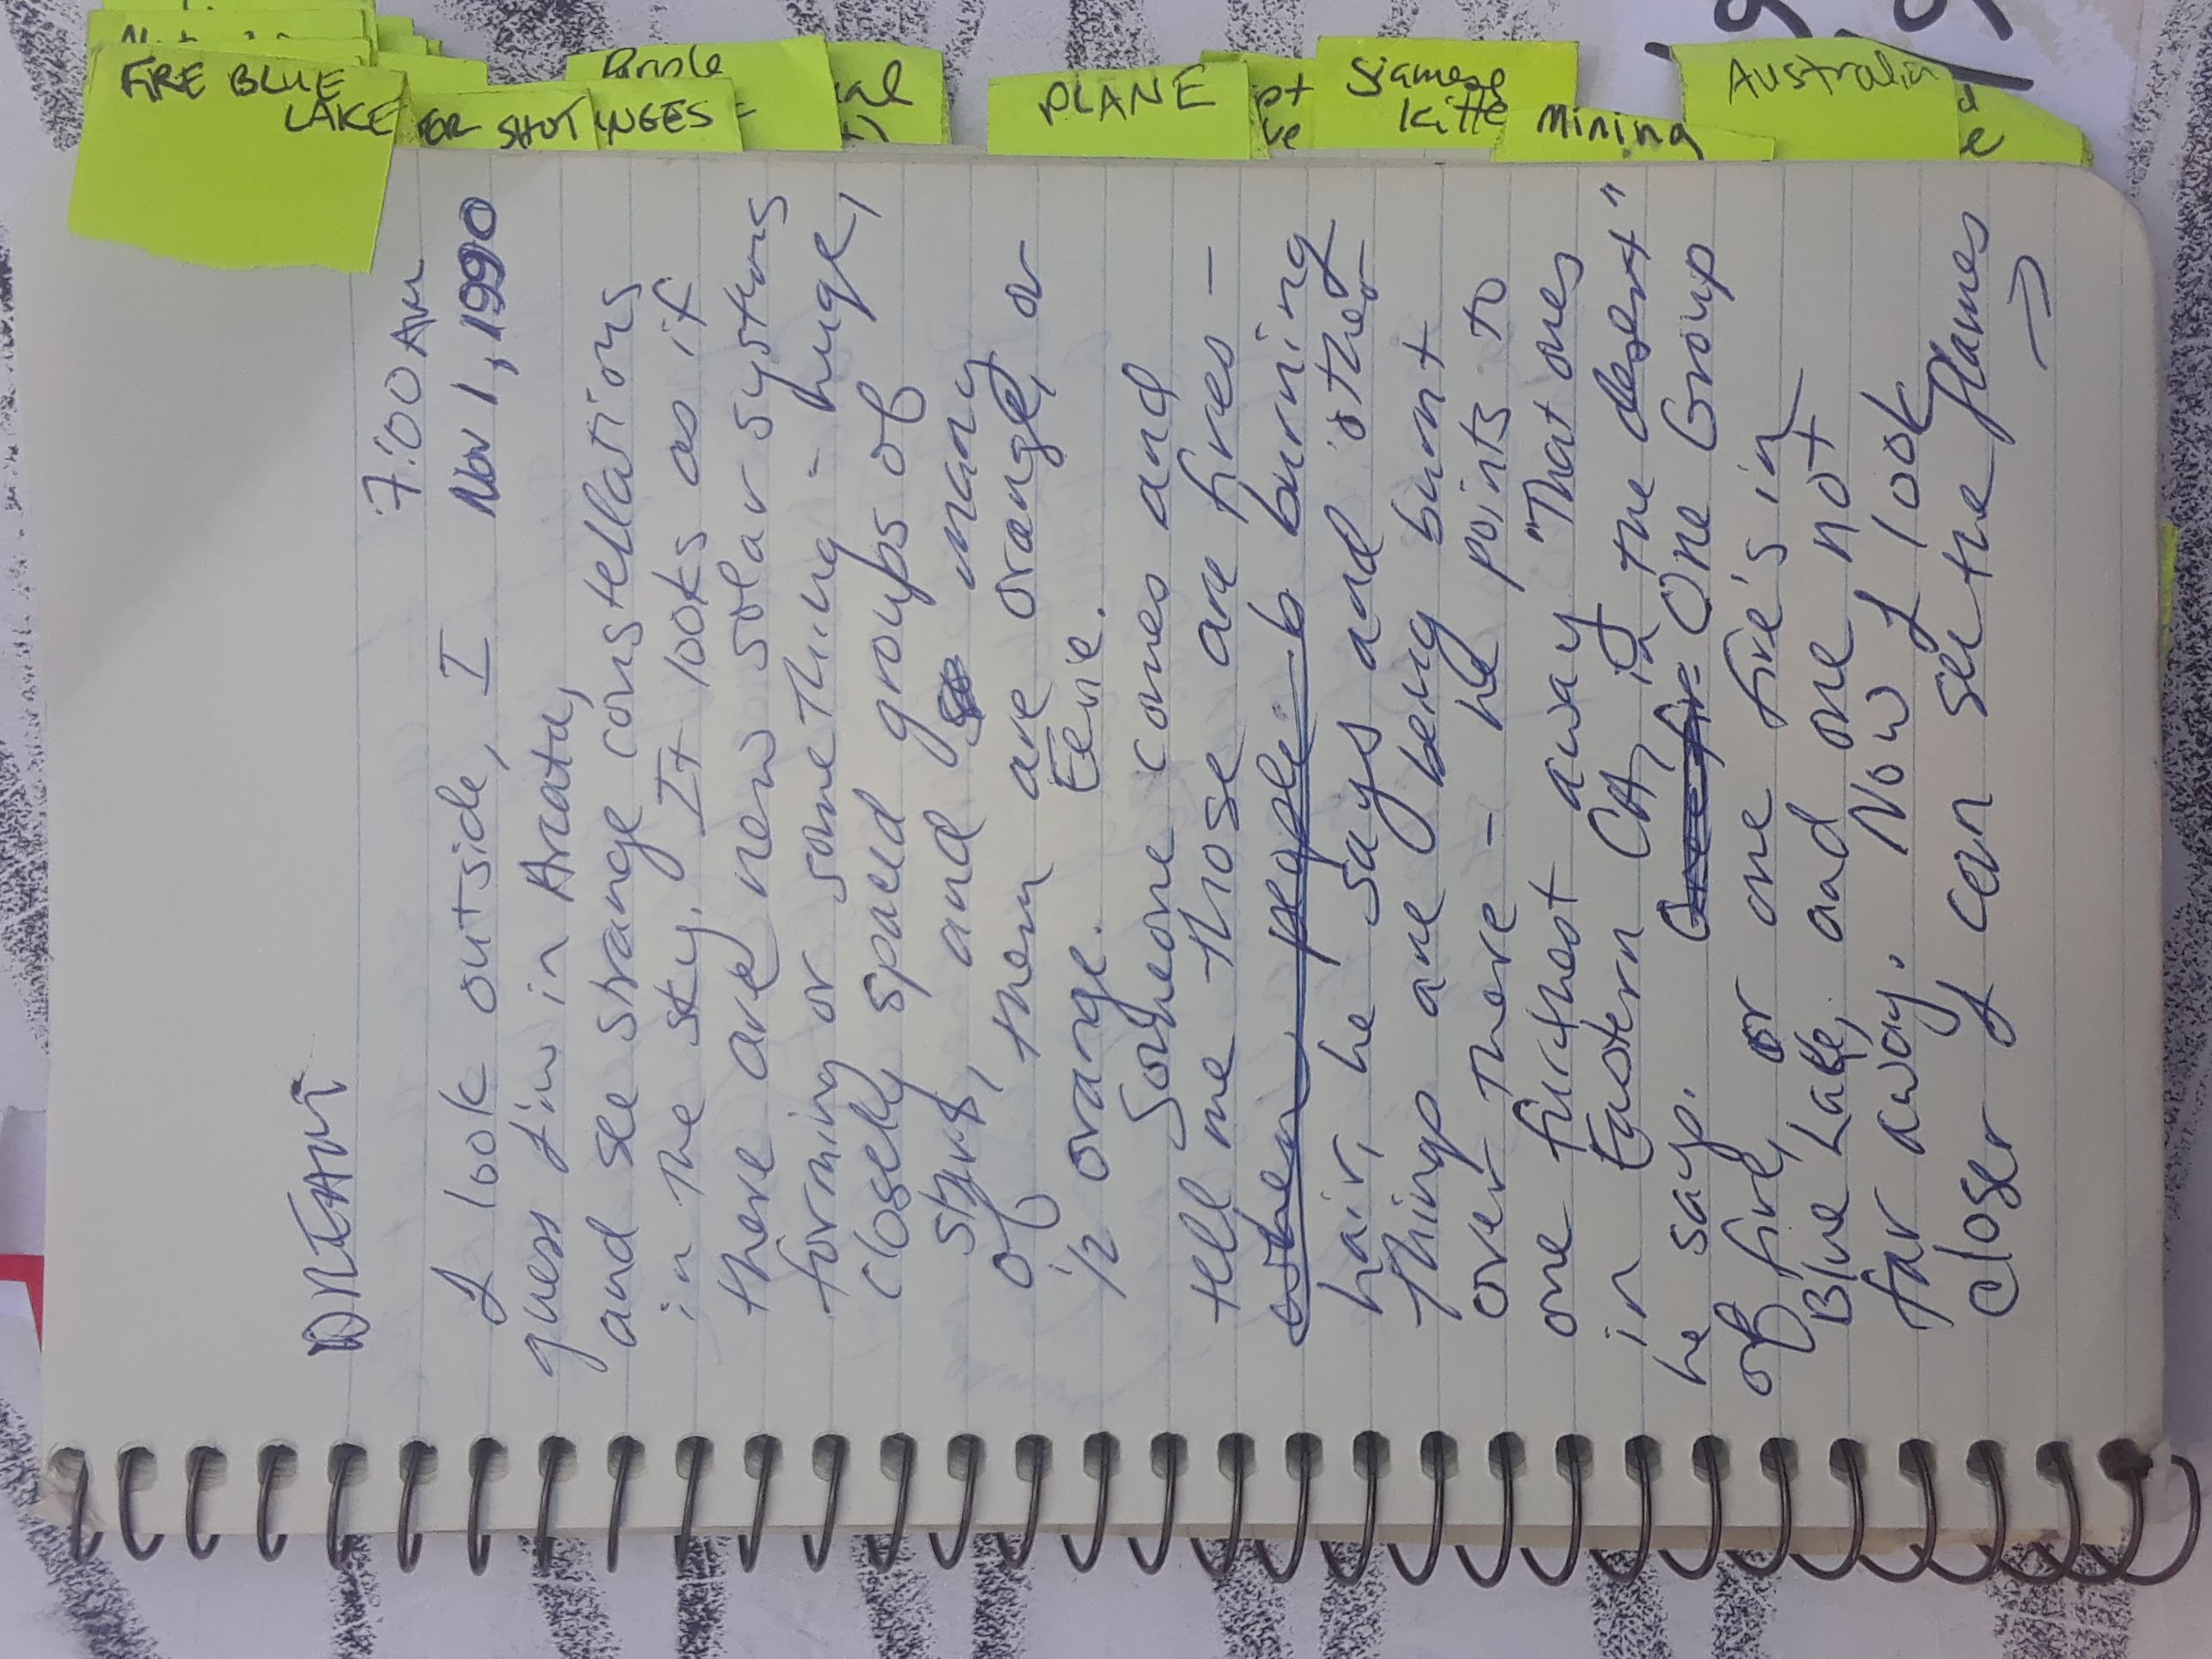 FIRE BLUE
LAKE
OR SHOT
NGES
Purple
PLANE
Siamese
Kitte
Mining
Australia
DREAM
7:00 AM
Nov 1, 1990
I look outside, I
guess I'm in Arcata,
and see strange constellations
in the sky. It looks as if
there are new solar systems
forming or something - huge,
closely spaced groups of
stars, and so many
of them are orange, or
1/2 orange. Eerie.
Someone comes and
tell me those are fires -
when people b burning
hair, he says and other
things are being burnt
over there - he points to
one furthest away "That ones
in Eastern CA, in the desert"
he says. One fir One Group
of fire, or one fire's in
Blue Lake, and one not
far away. Now I look
closer I can see the flames